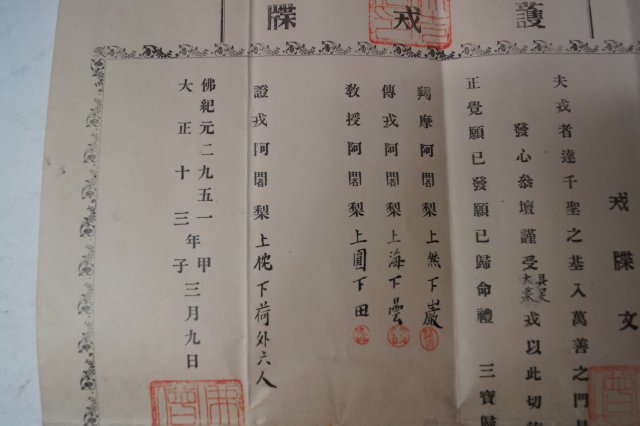 護戒牒
戒牒文
夫戒者達千聖之基入萬善之門
發心叅壇謹受具足大乘戒以此切
正覺願已發願已歸命禮 三寶歸
羯摩阿闍梨上然下巖
傳戒阿闍梨上海下曇
教授阿闍梨上圓下田
證戒阿闍梨上枕下荷外六人
佛紀元二九五一年甲子三月九日
大正十三